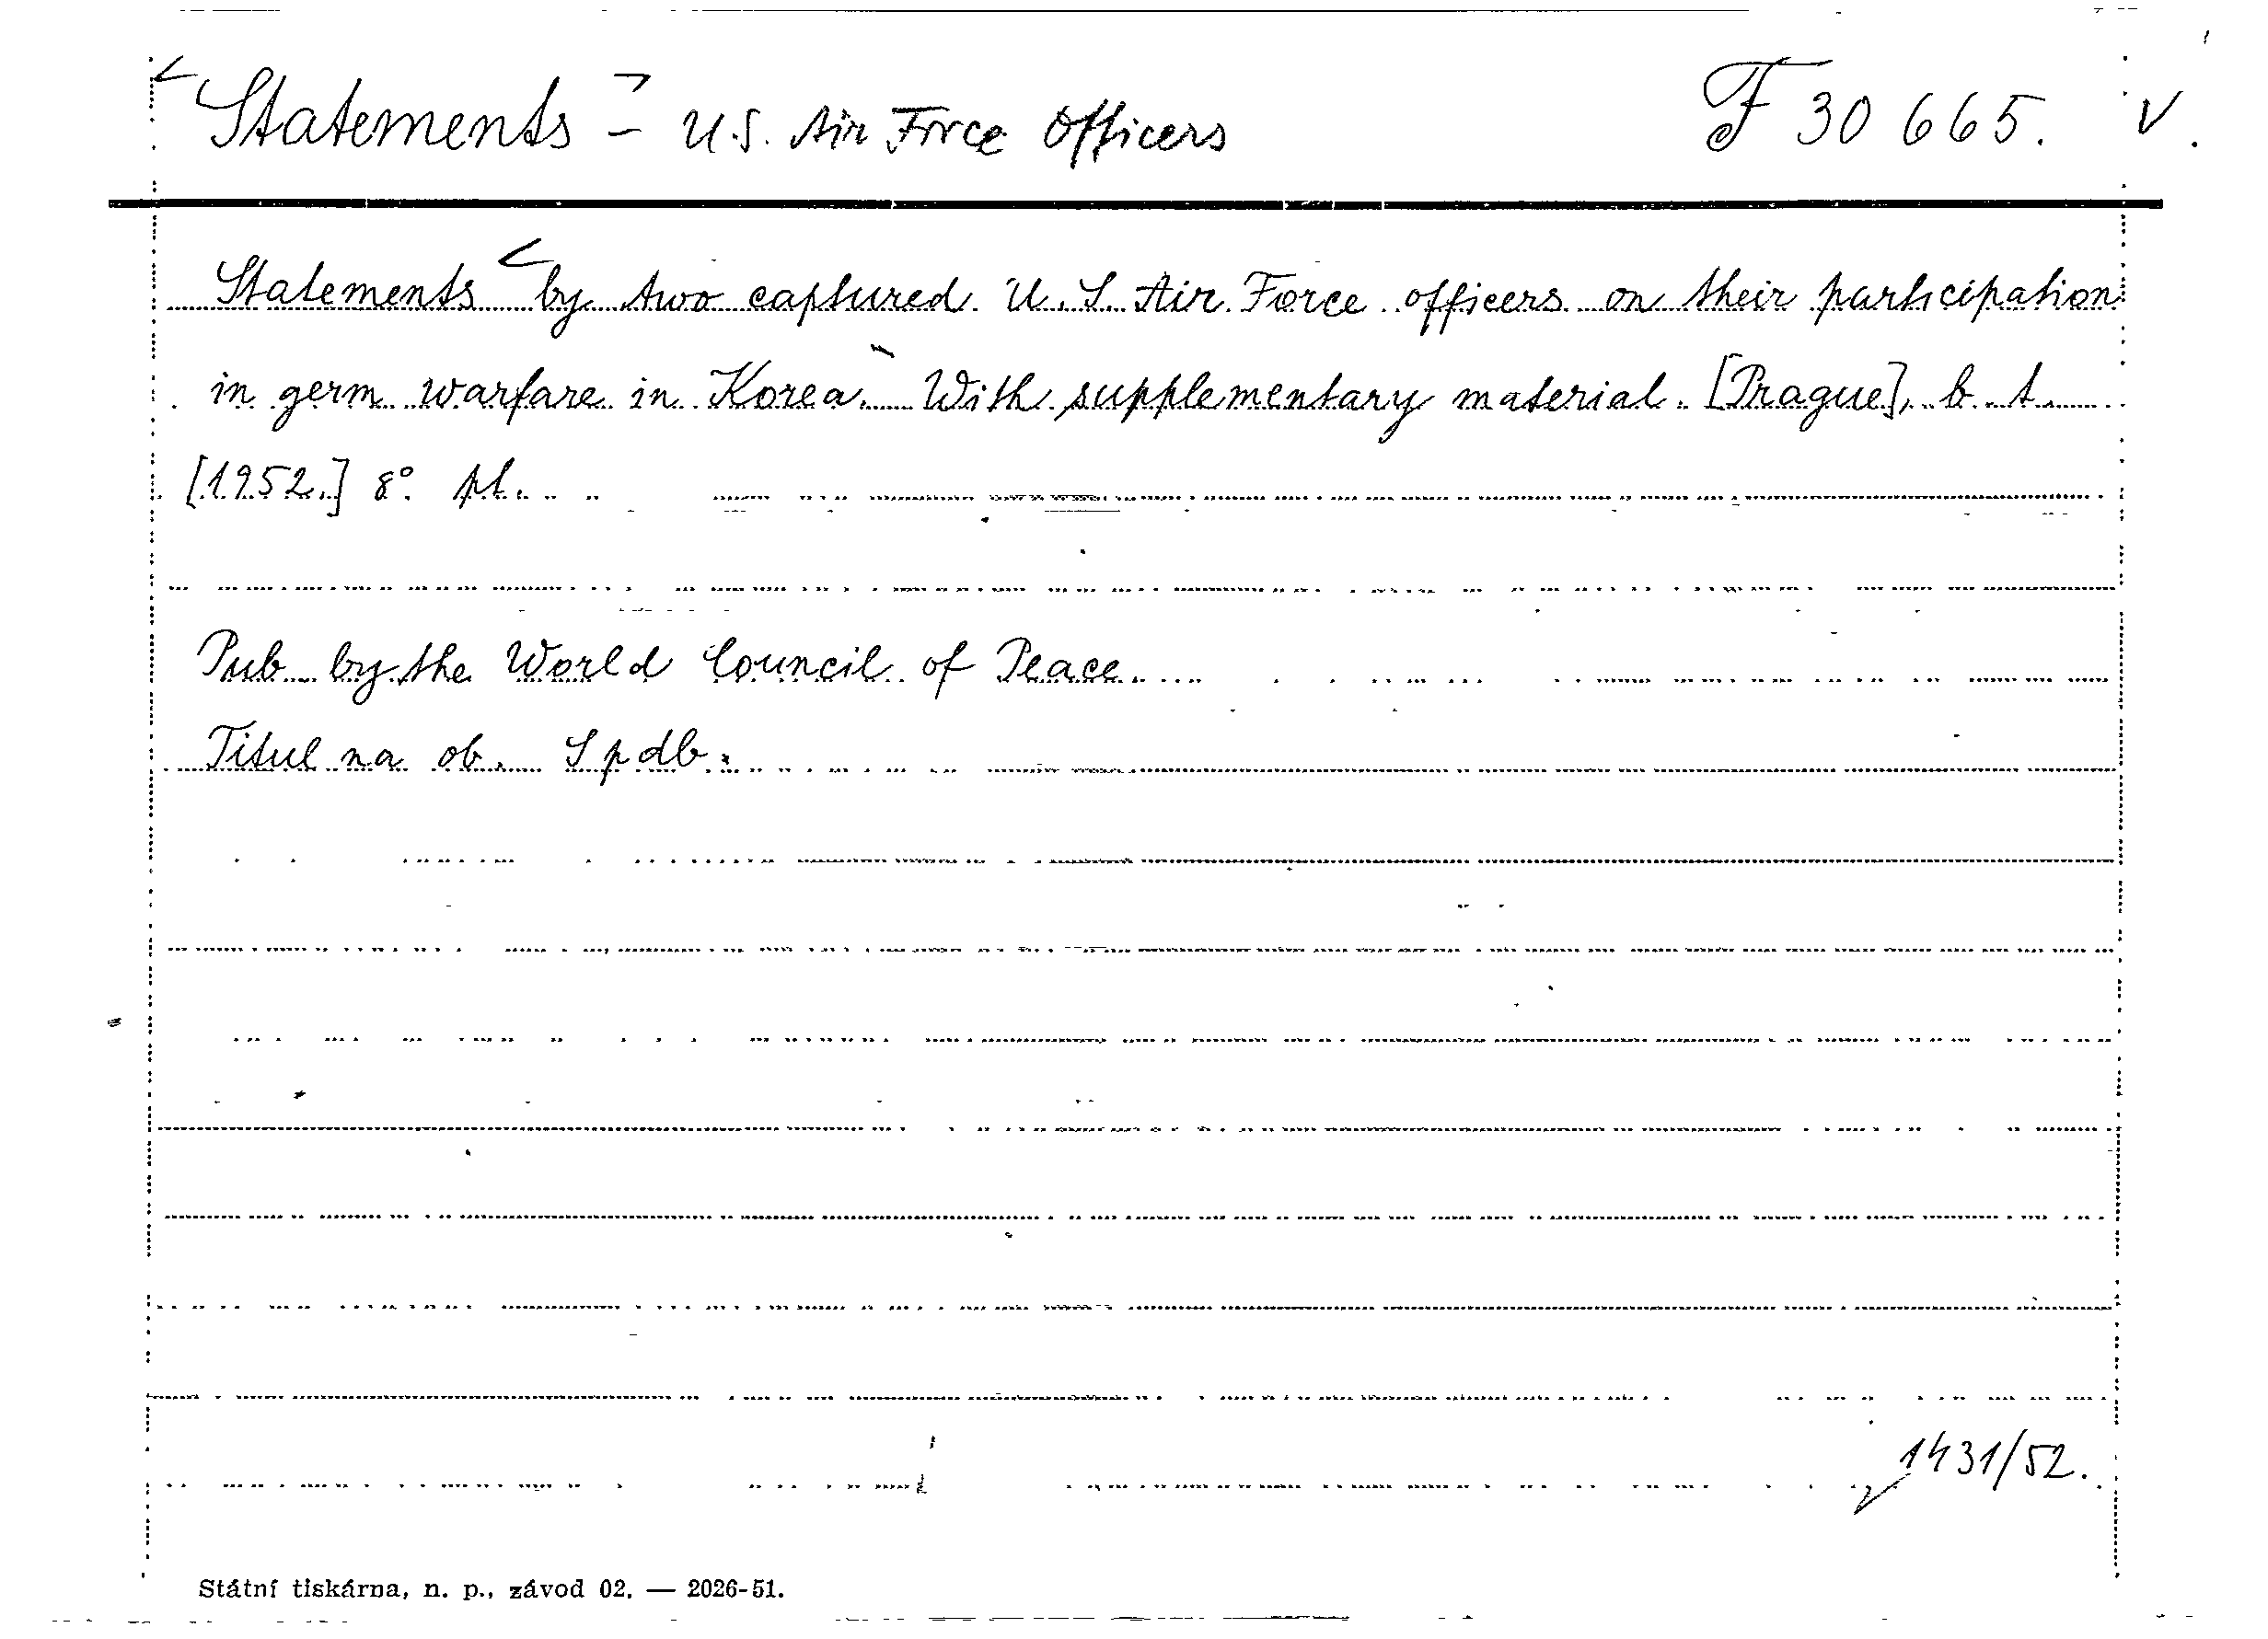 Statements - U.S. Air Force Officers F 30 665. V.
Statements by two captured U. S. Air Force officers on their participation
in germ warfare in Korea. With supplementary material. [Prague], b. t.
[1952.] 8°. pl.
Pub by the World Council of Peace.
Titul na ob. S p db.
1431/52.
Státní tiskárna, n. p., závod 02. — 2026-51.